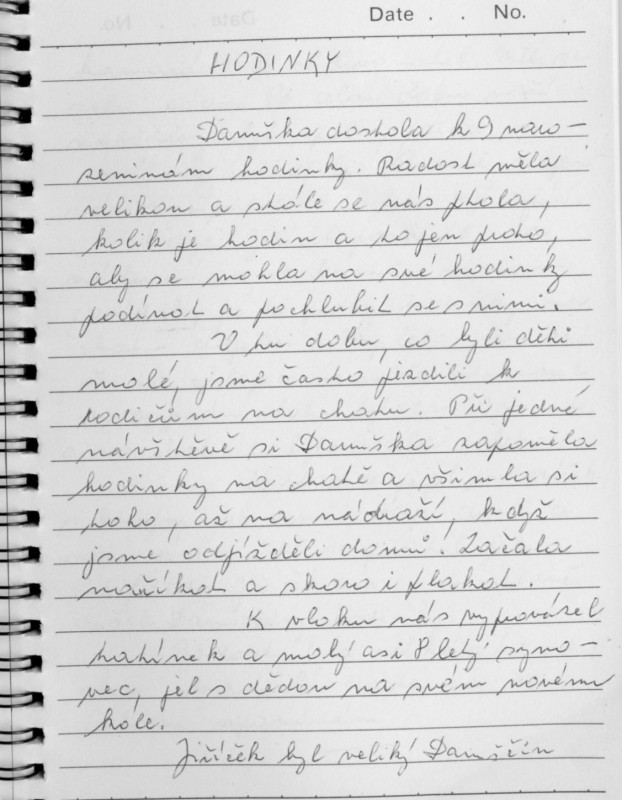 Date . . No.
HODINKY
Danuška dostala k 9 naro-
zeninám hodinky. Radost měla
velikou a stále se nás ptala,
kolik je hodin a to jen proto,
aby se mohla na své hodinky
podívat a pochlubit se s nimi.
V tu dobu, co byli děti
malé, jsme často jezdili k
rodičům na chatu. Při jedné
návštěvě si Danuška zapoměla
hodinky na chatě a všimla si
toho, až na nádraží, když
jsme odjížděli domů. Začala
naříkat a skoro i plakat.
K vlaku nás vyprovázel
tatínek a malý asi 8 letý syno-
vec, jel s dědou na svém novém
kole.
Jiříček byl veliký Danuščin